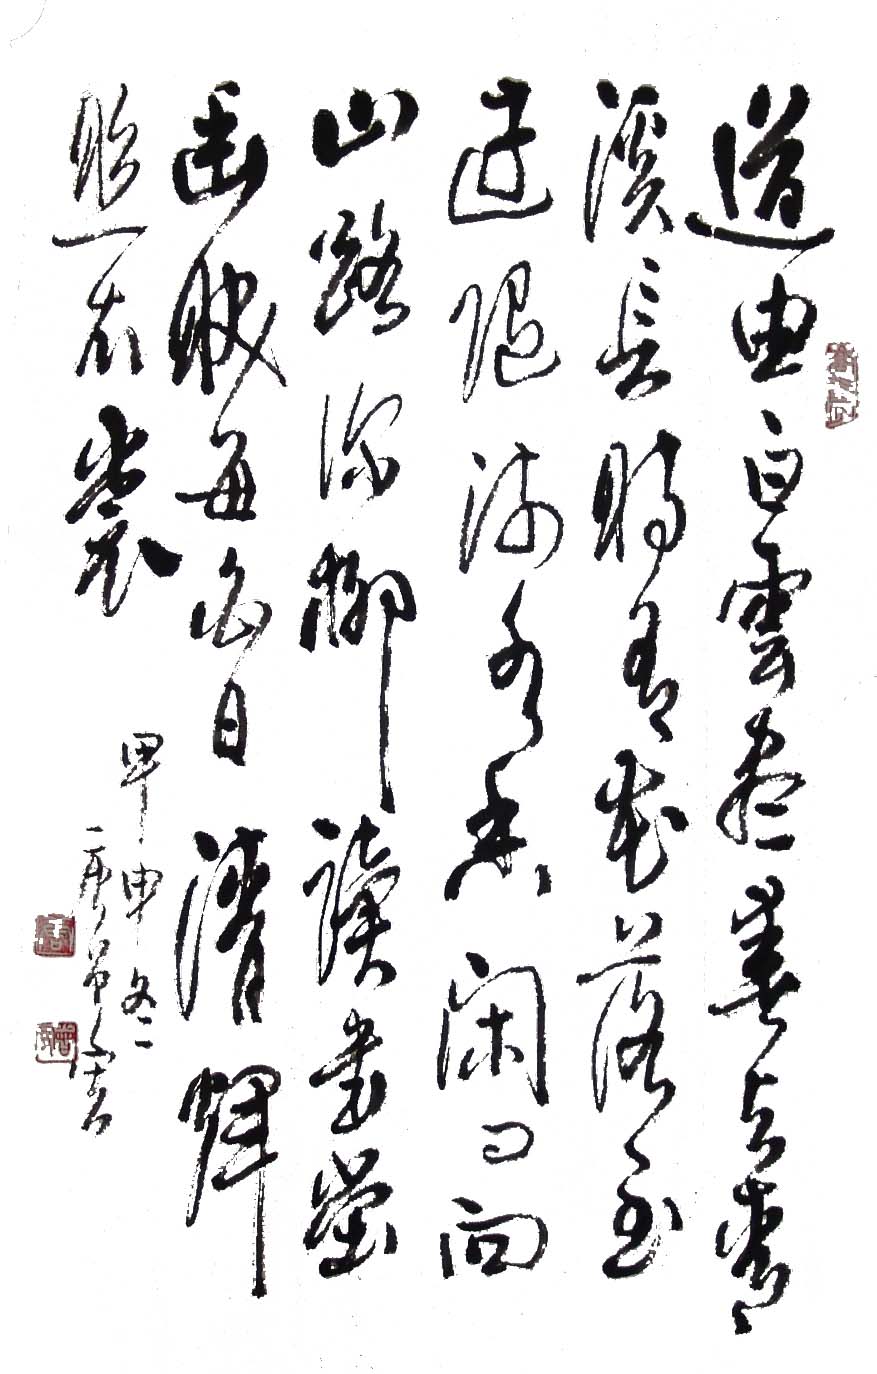 道由白雲盡春與青
溪長時有花落至
遠隨流水香閑門向
山路深柳讀書堂
幽映每白日清輝
照衣裳
甲申冬